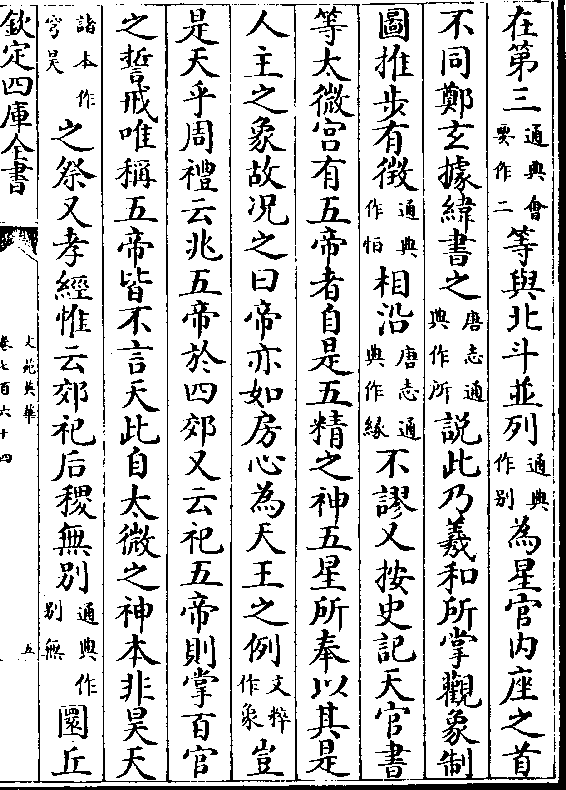 在第三通典會要作二等與北斗並列通典作别為星官内座之首
不同鄭玄據緯書之唐志通典作所說此乃羲和所掌觀象制
圖推步有徴通典作怕相沿唐志通典作緣不謬又按史記天官書
等太微宫有五帝者自是五精之神五星所奉以其是
人主之象故况之曰帝亦如房心為天王之例文粹作象豈
是天乎周禮云兆五帝於四郊又云祀五帝則掌百官
之誓戒唯稱五帝皆不言天此自太微之神本非昊天
諸本作穹昊之祭又孝經惟云郊祀后稷無别通典作别無圜丘
欽定四庫全書
文苑英華
卷七百六十四
五